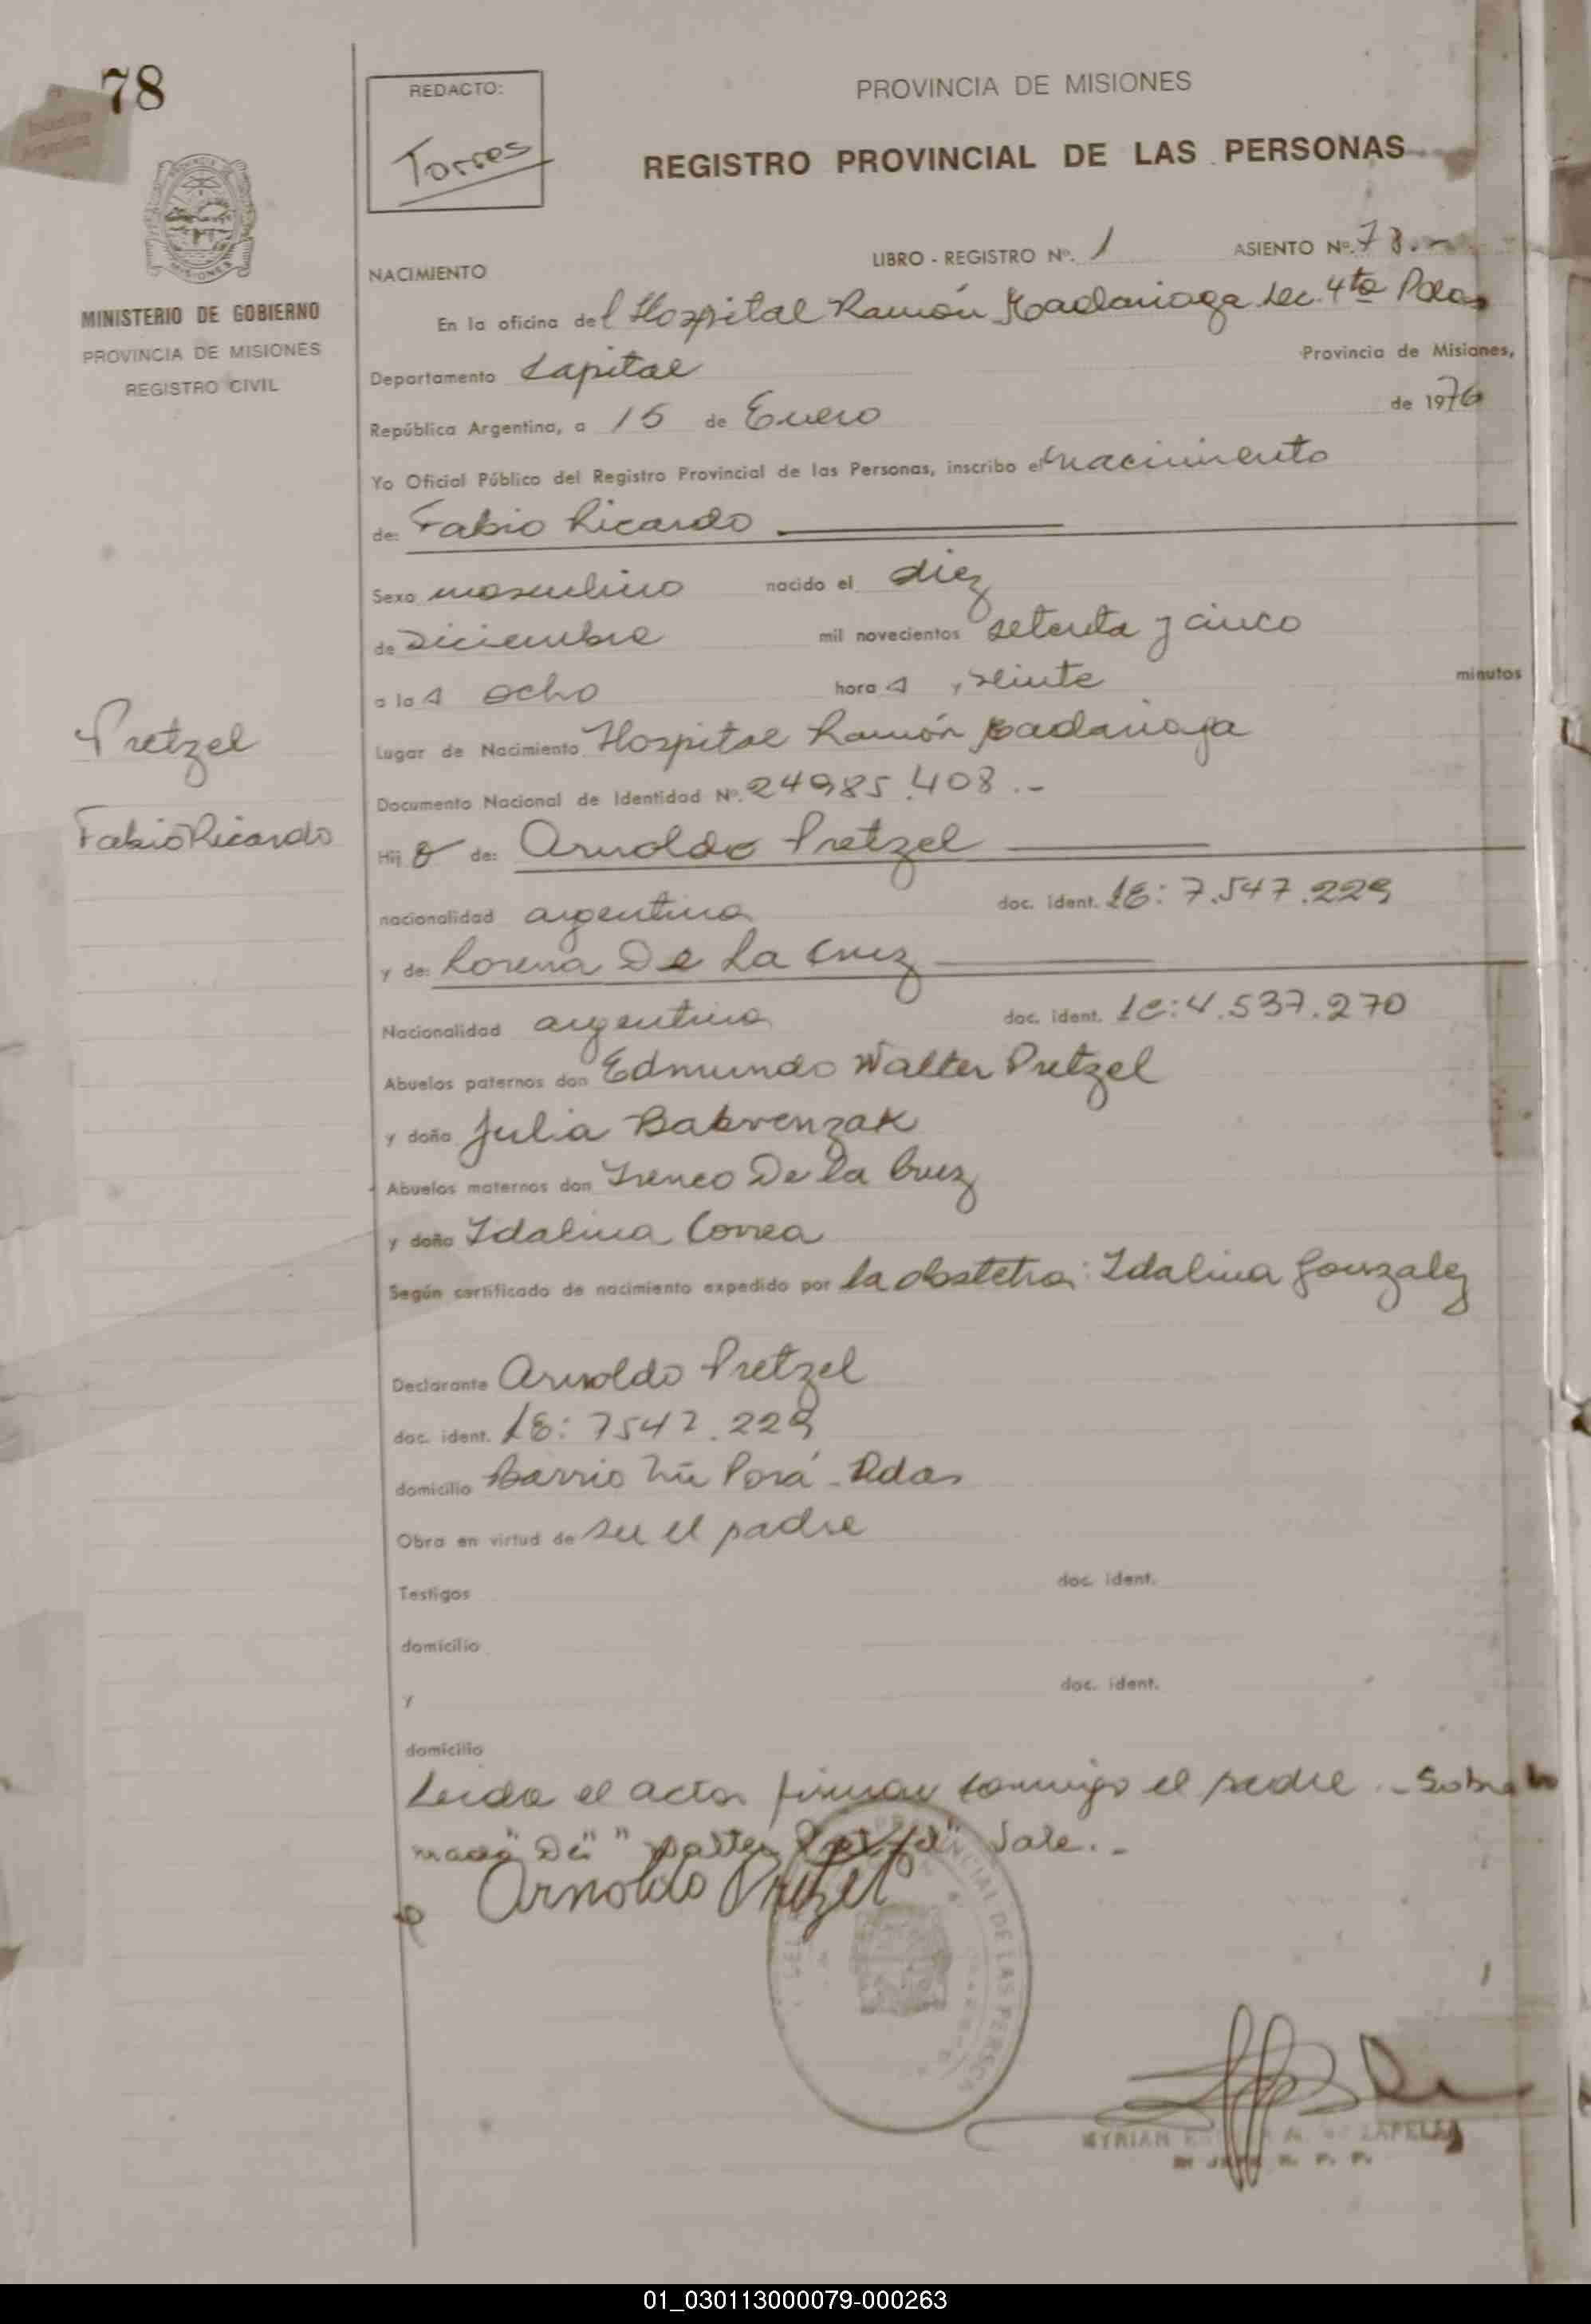 78
REDACTO:
Torres
PROVINCIA DE MISIONES
REGISTRO PROVINCIAL DE LAS PERSONAS
LIBRO - REGISTRO Nº. 1 ASIENTO Nº. 78.-
NACIMIENTO
MINISTERIO DE GOBIERNO
PROVINCIA DE MISIONES
REGISTRO CIVIL
En la oficina del Hospital Ramón Madariaga Sec. 4ta Pdas
Departamento Capital Provincia de Misiones,
República Argentina, a 15 de Enero de 1976
Yo Oficial Público del Registro Provincial de las Personas, inscribo el nacimiento
de: Fabio Ricardo
Sexo masculino nacido el diez
de Diciembre mil novecientos setenta y cinco
a las ocho horas, veinte minutos
Lugar de Nacimiento Hospital Ramón Madariaga
Documento Nacional de Identidad Nº. 24985.408.-
Pretzel
Fabio Ricardo
Hijo de: Arnoldo Pretzel
nacionalidad argentina doc. ident. LE: 7.547.229
y de: Lorena De La Cruz
Nacionalidad argentina doc. ident. LC: 4.537.270
Abuelos paternos don Edmundo Walter Pretzel
y doña Julia
Abuelos maternos don Ireneo De la Cruz
y doña Idalina Correa
Según certificado de nacimiento expedido por la obstetra: Idalina Gonzalez
Declarante Arnoldo Pretzel
doc. ident. LE: 7547.229
domicilio Barrio Ñu Porá - Pdas
Obra en virtud de ser el padre
Testigos doc. ident.
domicilio
y doc. ident.
domicilio
Leida el acta, firma conmigo el padre.- Sobre
"De" Vale.-
Arnoldo Pretzel
MYRIAN
01_030113000079-000263